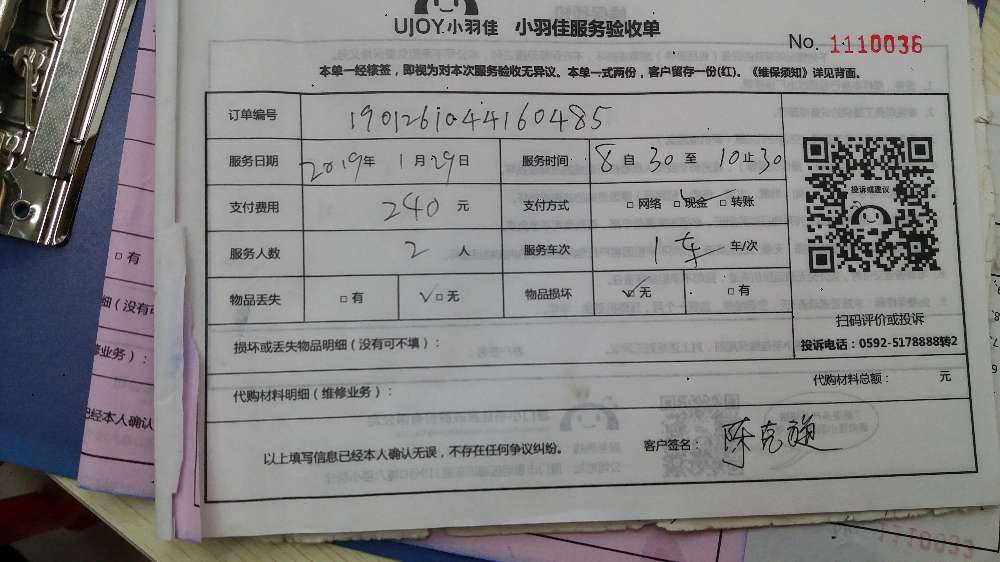 UJOY.小羽佳 小羽佳服务验收单
No. 1110036
本单一经核签，即视为对本次服务验收无异议。本单一式两份，客户留存一份(红)。《维保须知》详见背面。
订单编号 1901261044160485
服务日期 2019年 1月29日 服务时间 8自30至10止30
支付费用 240元 支付方式 □网络 □现金 □转账
服务人数 2人 服务车次 1车 车/次
物品丢失 □有 √□无 物品损坏 √无 □有
投诉或建议
扫码评价或投诉
投诉电话：0592-5178888转2
损坏或丢失物品明细（没有可不填）：
代购材料明细（维修业务）： 代购材料总额： 元
以上填写信息已经本人确认无误，不存在任何争议纠纷。 客户签名：陈克
□有
细（没有可
修业务）：
已经本人确认
1110033